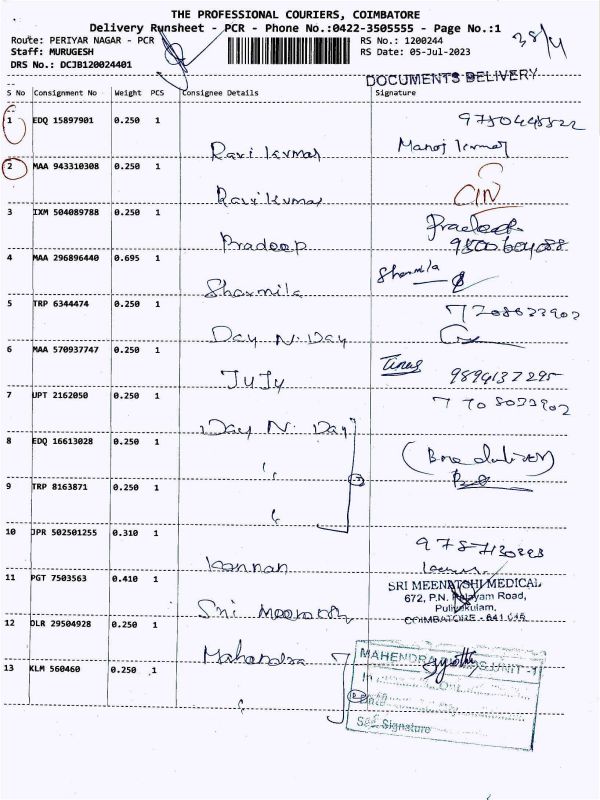 THE PROFESSIONAL COURIERS, COIMBATORE
Delivery Runsheet - PCR - Phone No.:0422-3505555 - Page No.:1
Route: PERIYAR NAGAR - PCR RS No.: 1200244
Staff: MURUGESH RS Date: 05-Jul-2023
DRS No.: DCJB120024401
DOCUMENTS DELIVERY
S No Consignment No Weight PCS Consignee Details Signature
1 EDQ 15897901 0.250 1
Ravi kumar Manoj kumar
2 MAA 943310308 0.250 1
Ravi kumar
3 IXM 504089788 0.250 1
Pradeep
4 MAA 296896440 0.695 1 Sharmila
Sharmila
5 TRP 6344474 0.250 1
Day N. Day
6 MAA 570937747 0.250 1
JuJy 9894137295
7 UPT 2162050 0.250 1
Day N. Day
8 EDQ 16613028 0.250 1
"
9 TRP 8163871 0.250 1
"
10 JPR 502501255 0.310 1
Kannan
11 PGT 7503563 0.410 1 SRI MEENATSHI MEDICAL
672, P.N. Palayam Road,
Sri Meenatchi Puliyakulam,
COIMBATORE - 641 045
12 DLR 29504928 0.250 1
Mahendra
MAHENDRA
13 KLM 560460 0.250 1
"
Signature